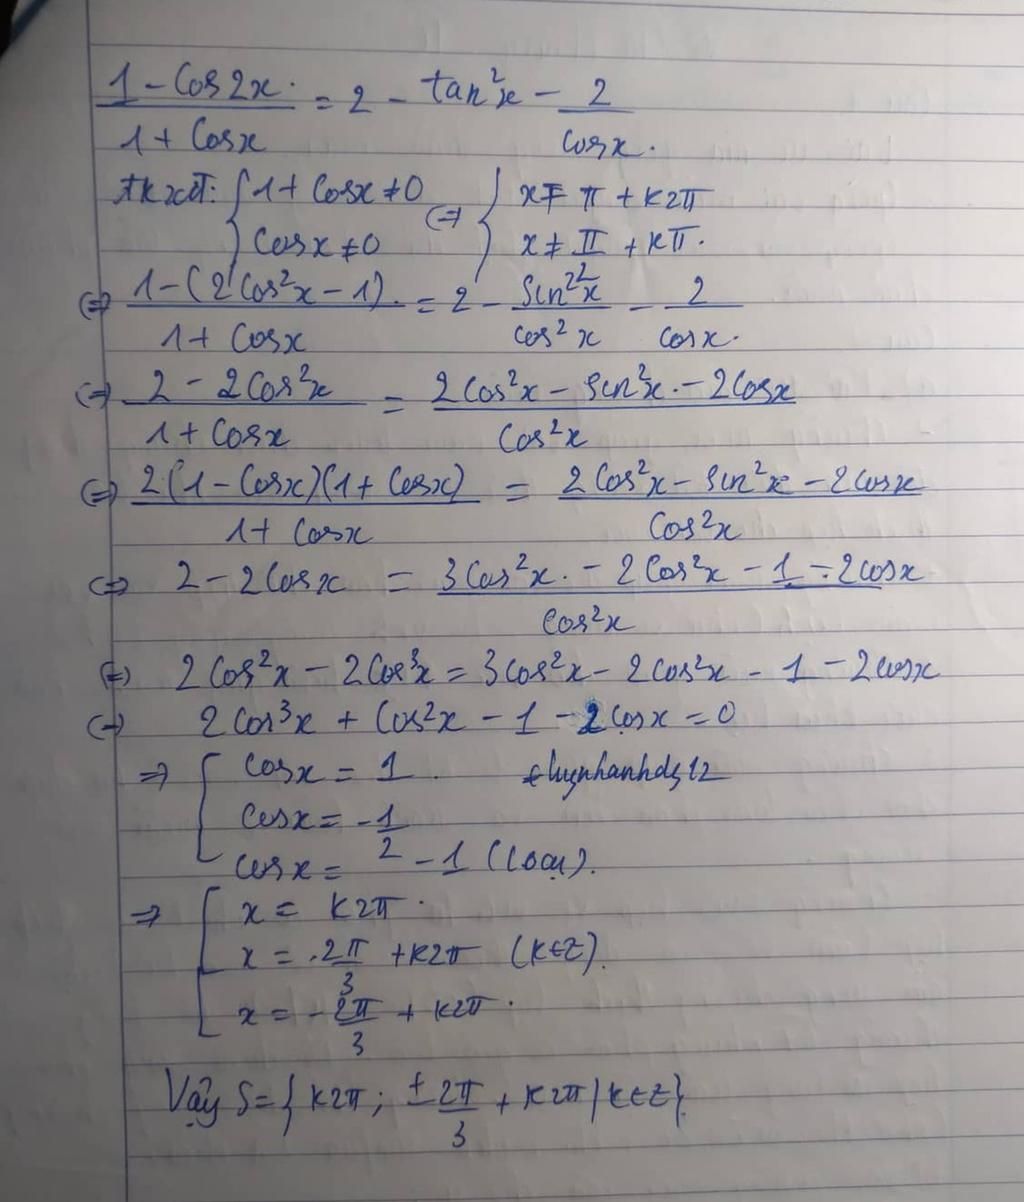 1 - Cos2x / 1 + Cosx = 2 - tan²x - 2 / cosx.
ĐKXĐ: { 1 + Cosx ≠ 0 ; Cosx ≠ 0 (=) { x ≠ π + k2π ; x ≠ π/2 + kπ.
(=) 1 - (2Cos²x - 1) / 1 + Cosx = 2 - Sin²x / cos²x - 2 / Cosx.
(=) 2 - 2Cos²x / 1 + Cosx = 2Cos²x - sin²x - 2Cosx / Cos²x
(=) 2(1 - Cosx)(1 + Cosx) / 1 + Cosx = 2Cos²x - sin²x - 2cosx / Cos²x
(=) 2 - 2Cosx = 3Cos²x - 2Cos²x - 1 - 2cosx / Cos²x
(=) 2Cos²x - 2Cos³x = 3cos²x - 2Cos²x - 1 - 2cosx
(=) 2Cos³x + Cos²x - 1 - 2cosx = 0
=> [ cosx = 1
thuynhanhds12
cosx = -1/2
cosx = -1 (loại).
=> [ x = k2π.
x = 2π/3 + k2π (k∈Z).
x = -2π/3 + k2π.
Vậy S = { k2π ; ±2π/3 + k2π / k∈Z }